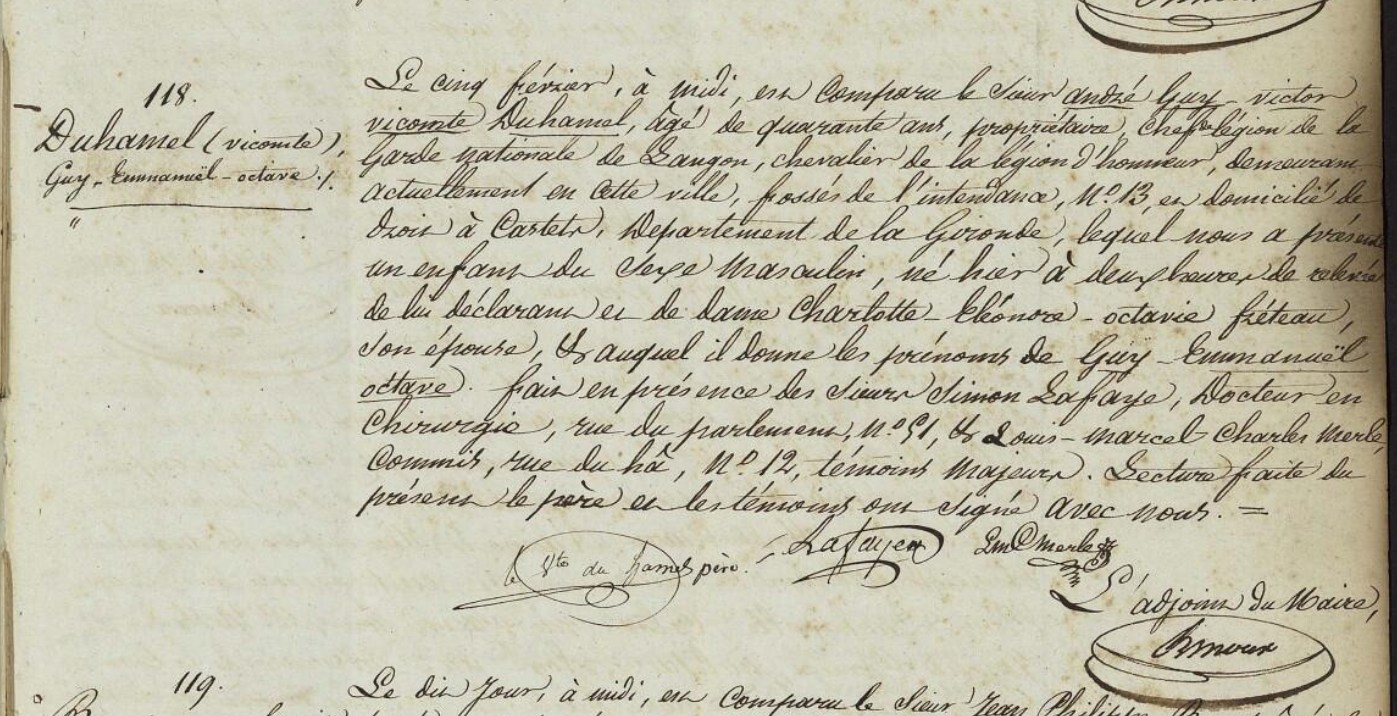 118.
Duhamel (vicomte),
Guy-Emmanuël-octave ./.
"
Le cinq février, à midi, est comparu le sieur andré Guy-victor
vicomte Duhamel, âgé de quarante ans, propriétaire, chef de légion de la
Garde nationale de Langon, chevalier de la légion d'honneur, demeurant
actuellement en cette ville, fossés de l'intendance, N.º 13, et domicilié de
droit à Castets, Département de la Gironde, lequel nous a présenté
un enfant du sexe Masculin, né hier à deux heures de relevée
de lui déclarant et de dame Charlotte-Eléonore-octavie fréteau,
son épouse, & auquel il donne les prénoms de Guÿ-Emmanuël
octave. fait en présence des sieurs Simon Lafaye, Docteur en
Chirurgie, rue du parlement, N.º 51, & Louis-marcel Charles Merle,
Commis, rue du hâ, N.º 12, témoins Majeurs. Lecture faite du
présent le père et les témoins ont signé avec nous. =
le Vte du hamel père.
Lafaye
LmC merle
L'adjoint du Maire,
119.
Le dit Jour, à midi, est comparu le sieur Jean Philippe